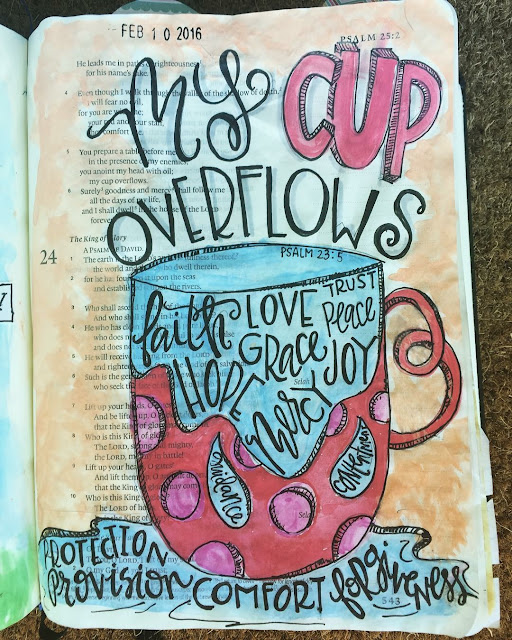 FEB 10 2016
PSALM 25:2
My CUP
OVERFLOWS
PSALM 23:5
He leads me in paths of righteousness
for his name's sake.
4 Even though I walk through the valley of the shadow of death,
I will fear no evil,
for you are
your rod and your staff,
comfort me.
5 You prepare a table before me
in the presence of my enemies;
you anoint my head with oil;
my cup overflows.
6 Surely goodness and mercy shall follow me
all the days of my life,
and I shall dwell in the house of the LORD
forever.
The King of Glory
24 A PSALM OF DAVID.
1 The earth is the
the world and those who dwell therein,
2 for he has founded it upon the seas
and established it upon the rivers.
3 Who shall ascend
And who shall
4 He who has clean
who does not
and does not
5 He will receive blessing from the LORD
and righteousness from the God of his salvation.
6 Such is the generation of
who seek the
Selah
7 Lift up your heads, O
And be lifted up, O
that the King of glory may
8 Who is this King of glory?
The LORD, strong and mighty,
the LORD, mighty in battle!
9 Lift up your heads, O gates!
And lift them up,
that the King of glory may come
10 Who is this King of
The LORD of
Selah
faith LOVE TRUST
Grace Peace
HOPE Mercy JOY
Guidance
PROTECTION
Provision COMFORT forgiveness
543